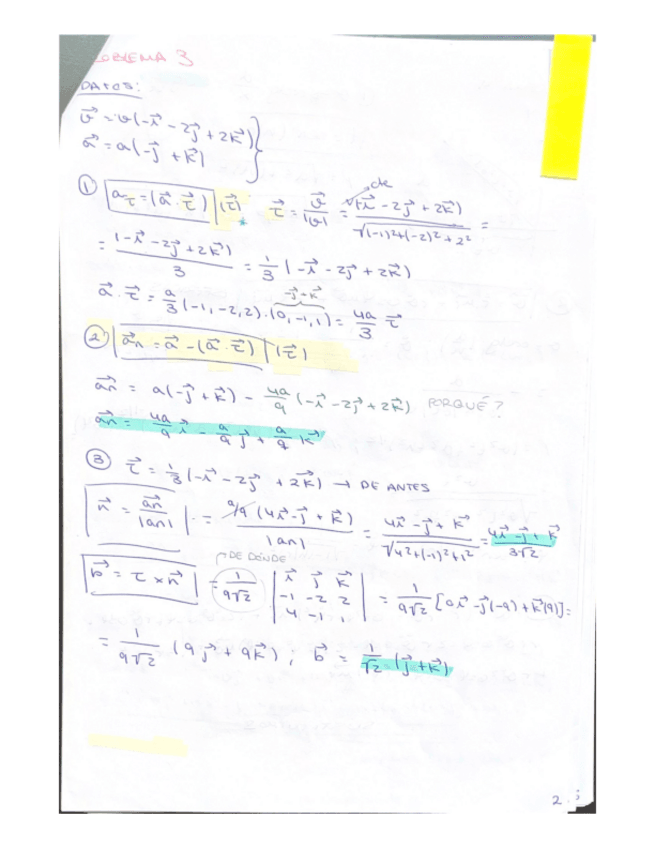 OBLEMA 3
DATOS:
v⃗ = v(-i⃗ - 2j⃗ + 2k⃗)
a⃗ = a(-j⃗ + k⃗)
① aτ = (a⃗ · τ⃗) (τ⃗) τ⃗ = v⃗/|v| = v(-i⃗ - 2j⃗ + 2k⃗)/√((-1)²+(-2)²+2²) =
= (-i⃗ - 2j⃗ + 2k⃗)/3 = 1/3 (-i⃗ - 2j⃗ + 2k⃗)
-j⃗+k⃗
a⃗ · τ⃗ = a/3 (-1, -2, 2) · (0, -1, 1) = 4a/3 τ⃗
② a⃗n = a⃗ - (a⃗ · τ⃗) (τ⃗)
a⃗n = a(-j⃗ + k⃗) - 4a/9 (-i⃗ - 2j⃗ + 2k⃗) PORQUÉ?
a⃗n = 4a/9 i⃗ - a/9 j⃗ + a/9 k⃗
③ τ⃗ = 1/3 (-i⃗ - 2j⃗ + 2k⃗) → DE ANTES
n⃗ = a⃗n/|an| = a/9 (4i⃗ - j⃗ + k⃗)/|an| = (4i⃗ - j⃗ + k⃗)/√(4²+(-1)²+1²) = (4i⃗ - j⃗ + k⃗)/3√2
DE DÓNDE
b⃗ = τ × n⃗ = 1/9√2 | i⃗ j⃗ k⃗ | = 1/9√2 [0i⃗ - j⃗(-9) + k⃗(9)] =
-1 -2 2
4 -1 1
= 1/9√2 (9j⃗ + 9k⃗) ; b⃗ = 1/√2 (j⃗ + k⃗)